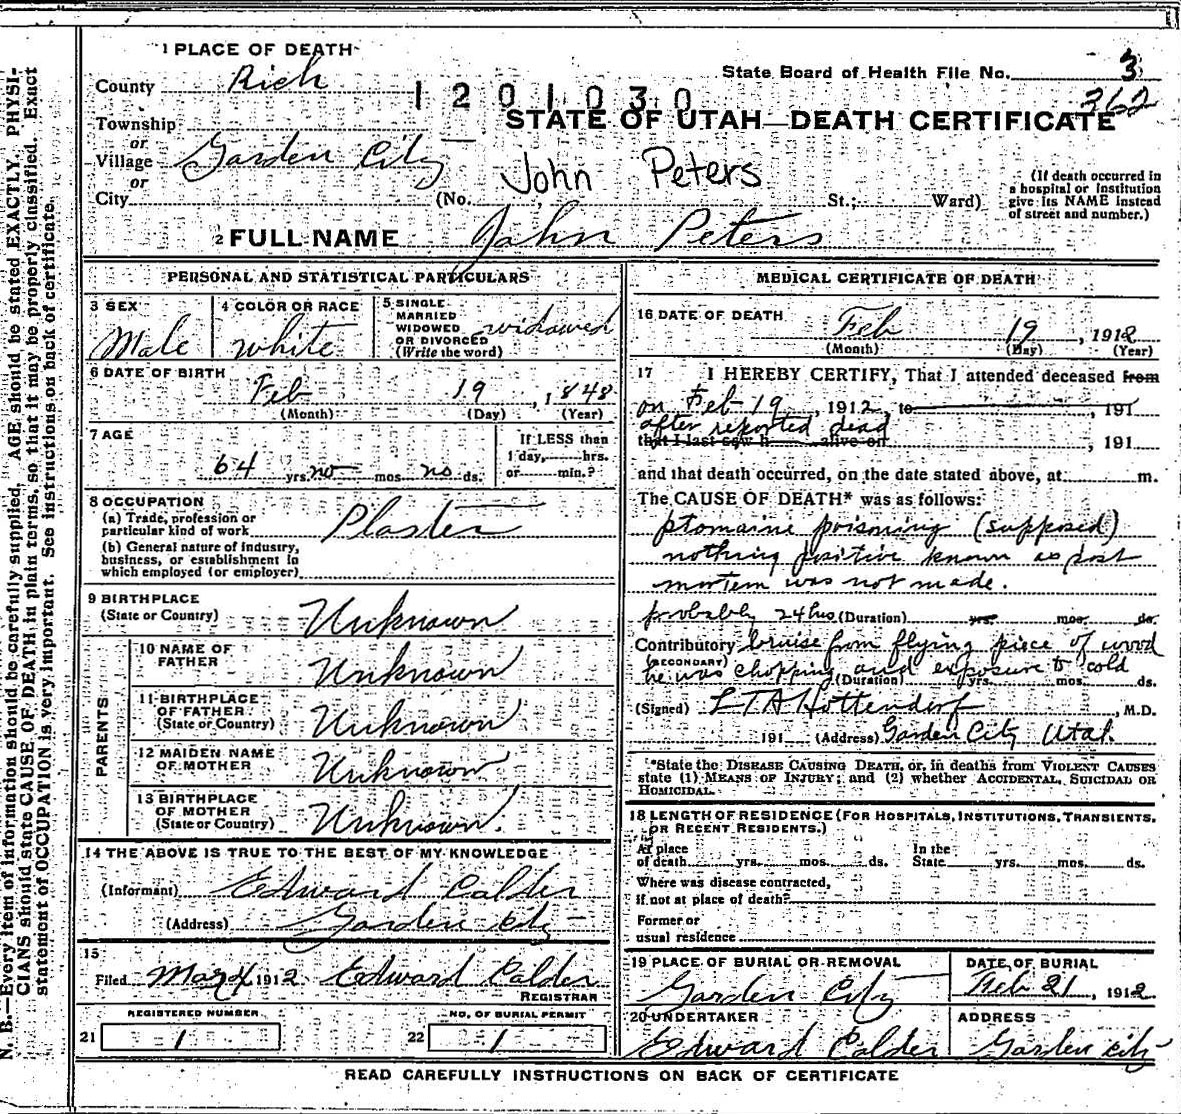 1 PLACE OF DEATH
County Rich
State Board of Health File No. 3
362
1201030
STATE OF UTAH—DEATH CERTIFICATE
Township
or
Village Garden City
or
City (No. John Peters St.; Ward)
(If death occurred in
a hospital or institution
give its NAME instead
of street and number.)
2 FULL NAME John Peters
PERSONAL AND STATISTICAL PARTICULARS
3 SEX
Male
4 COLOR OR RACE
White
5 SINGLE
MARRIED
WIDOWED
OR DIVORCED
(Write the word)
widowed
6 DATE OF BIRTH
Feb 19, 1848
(Month) (Day) (Year)
7 AGE
64 yrs. no mos. no ds.
If LESS than
1 day, hrs.
or min.?
8 OCCUPATION
(a) Trade, profession or
particular kind of work Plaster
(b) General nature of industry,
business, or establishment in
which employed (or employer)
9 BIRTHPLACE
(State or Country) Unknown
PARENTS
10 NAME OF
FATHER Unknown
11 BIRTHPLACE
OF FATHER
(State or Country) Unknown
12 MAIDEN NAME
OF MOTHER Unknown
13 BIRTHPLACE
OF MOTHER
(State or Country) Unknown.
14 THE ABOVE IS TRUE TO THE BEST OF MY KNOWLEDGE
(Informant) Edward Calder
(Address) Garden City
15
Filed Mar 4 1912 Edward Calder
REGISTRAR
REGISTERED NUMBER
21 1
NO. OF BURIAL PERMIT
22 1
MEDICAL CERTIFICATE OF DEATH
16 DATE OF DEATH
Feb 19, 1912
(Month) (Day) (Year)
17 I HEREBY CERTIFY, That I attended deceased from
on Feb 19, 1912, to , 191
after reported dead
that I last saw h alive on , 191
and that death occurred, on the date stated above, at m.
The CAUSE OF DEATH* was as follows:
ptomaine poisning (supposed)
nothing positive known as post
mortem was not made.
probably 24 hrs (Duration) yrs. mos. ds.
Contributory bruise from flying piece of wood
(SECONDARY) he was chopping and exposure to cold
(Duration) yrs. mos. ds.
(Signed) L T A Hottendorf, M.D.
191 (Address) Garden City Utah.
*State the DISEASE CAUSING DEATH, or, in deaths from VIOLENT CAUSES
state (1) MEANS OF INJURY; and (2) whether ACCIDENTAL, SUICIDAL OR
HOMICIDAL.
18 LENGTH OF RESIDENCE (FOR HOSPITALS, INSTITUTIONS, TRANSIENTS,
OR RECENT RESIDENTS.)
At place
of death yrs. mos. ds.
In the
State yrs. mos. ds.
Where was disease contracted,
if not at place of death?
Former or
usual residence
19 PLACE OF BURIAL OR REMOVAL
Garden City
DATE OF BURIAL
Feb 21, 1912
20 UNDERTAKER
Edward Calder
ADDRESS
Garden City
READ CAREFULLY INSTRUCTIONS ON BACK OF CERTIFICATE
N. B.—Every item of information should be carefully supplied. AGE should be stated EXACTLY. PHYSI-
CIANS should state CAUSE OF DEATH in plain terms, so that it may be properly classified. Exact
statement of OCCUPATION is very important. See instructions on back of certificate.